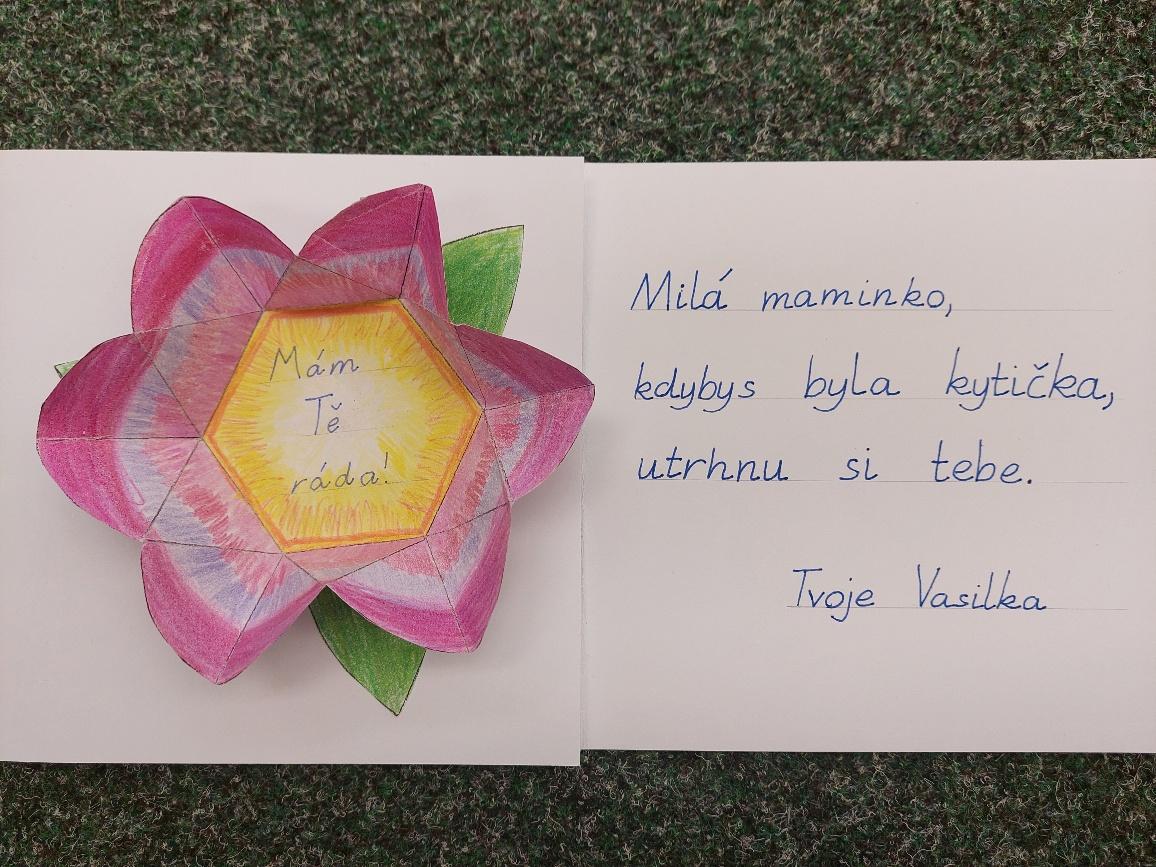 Mám
Tě
ráda!
Milá maminko,
kdybys byla kytička,
utrhnu si tebe.
Tvoje Vasilka